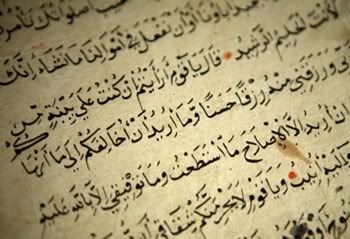 صلوتك تأمرك
اباؤنا او ان نفعل في اموالنا ما نشاء انك
لانت الحليم الرشيد قال يا قوم ارايتم ان كنت على بينة من
ربي ورزقني منه رزقا حسنا وما اريد ان اخالفكم الى ما انها
ان اريد الا الاصلاح ما استطعت وما توفيقي الا بالله عليه
واليه انيب ويا قوم لا يجرمنكم شقاقي